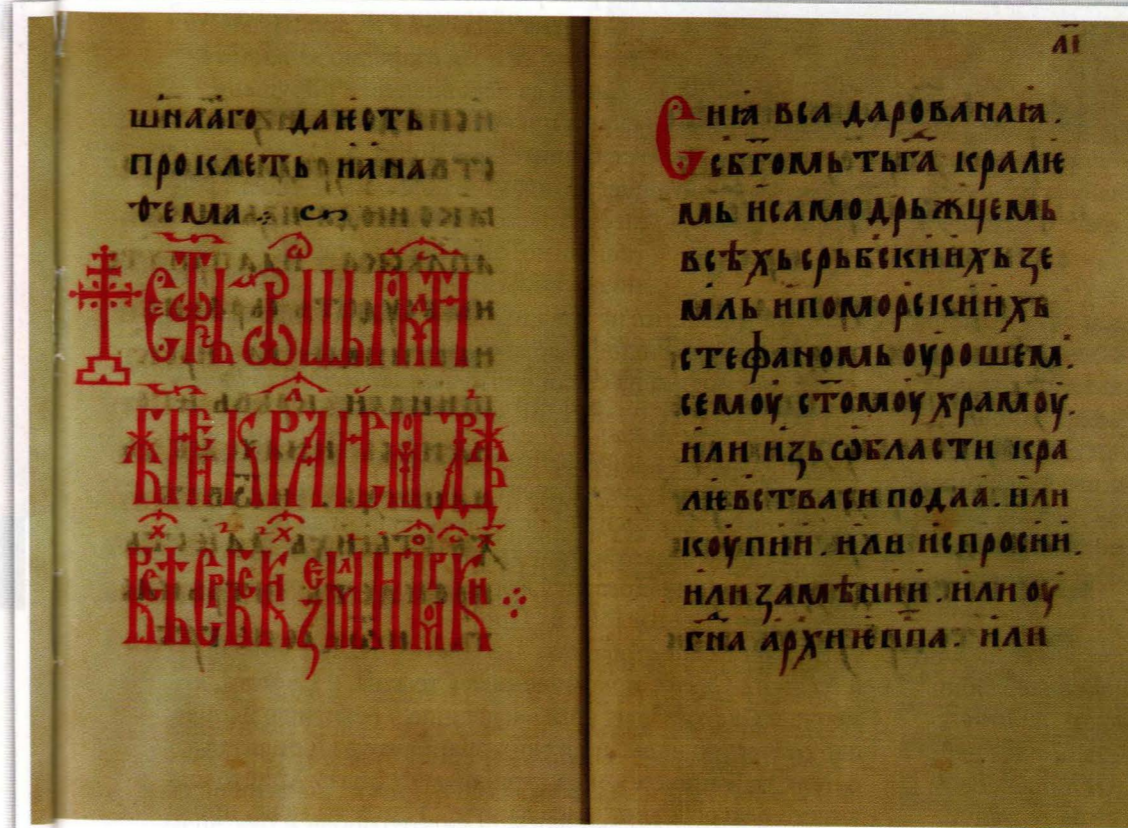 шнааго дакѥть
проклеть и҆ана
ѳема
Стефань Оурѡшь мⷧ҇тїю
бж҃їею краль и самодрьжць
всѣхь срьбскыхь земль и поморскыхь
а҃і
Сиꙗ вса дарованаꙗ.
сбг҃омь тьга кралѥ
мь и҆самодрьжцемь
всѣхь срьбскиихь зе
мль и҆поморскиихь
стефаномь оурошем.
семоу ст҃омоу храмоу.
и҆ли и҆зь ѡбласти кра
лѥвства си подаа. и҆ли
коупии. и҆ли и҆спроси и҆.
и҆ли замѣнии. и҆ли оу
гн҃а архиѥпп҃а. и҆ли